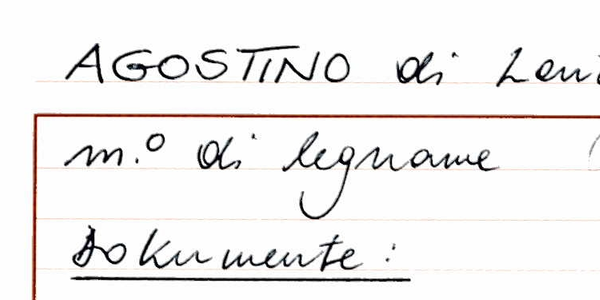 AGOSTINO di
m.o di legname
Dokumente: